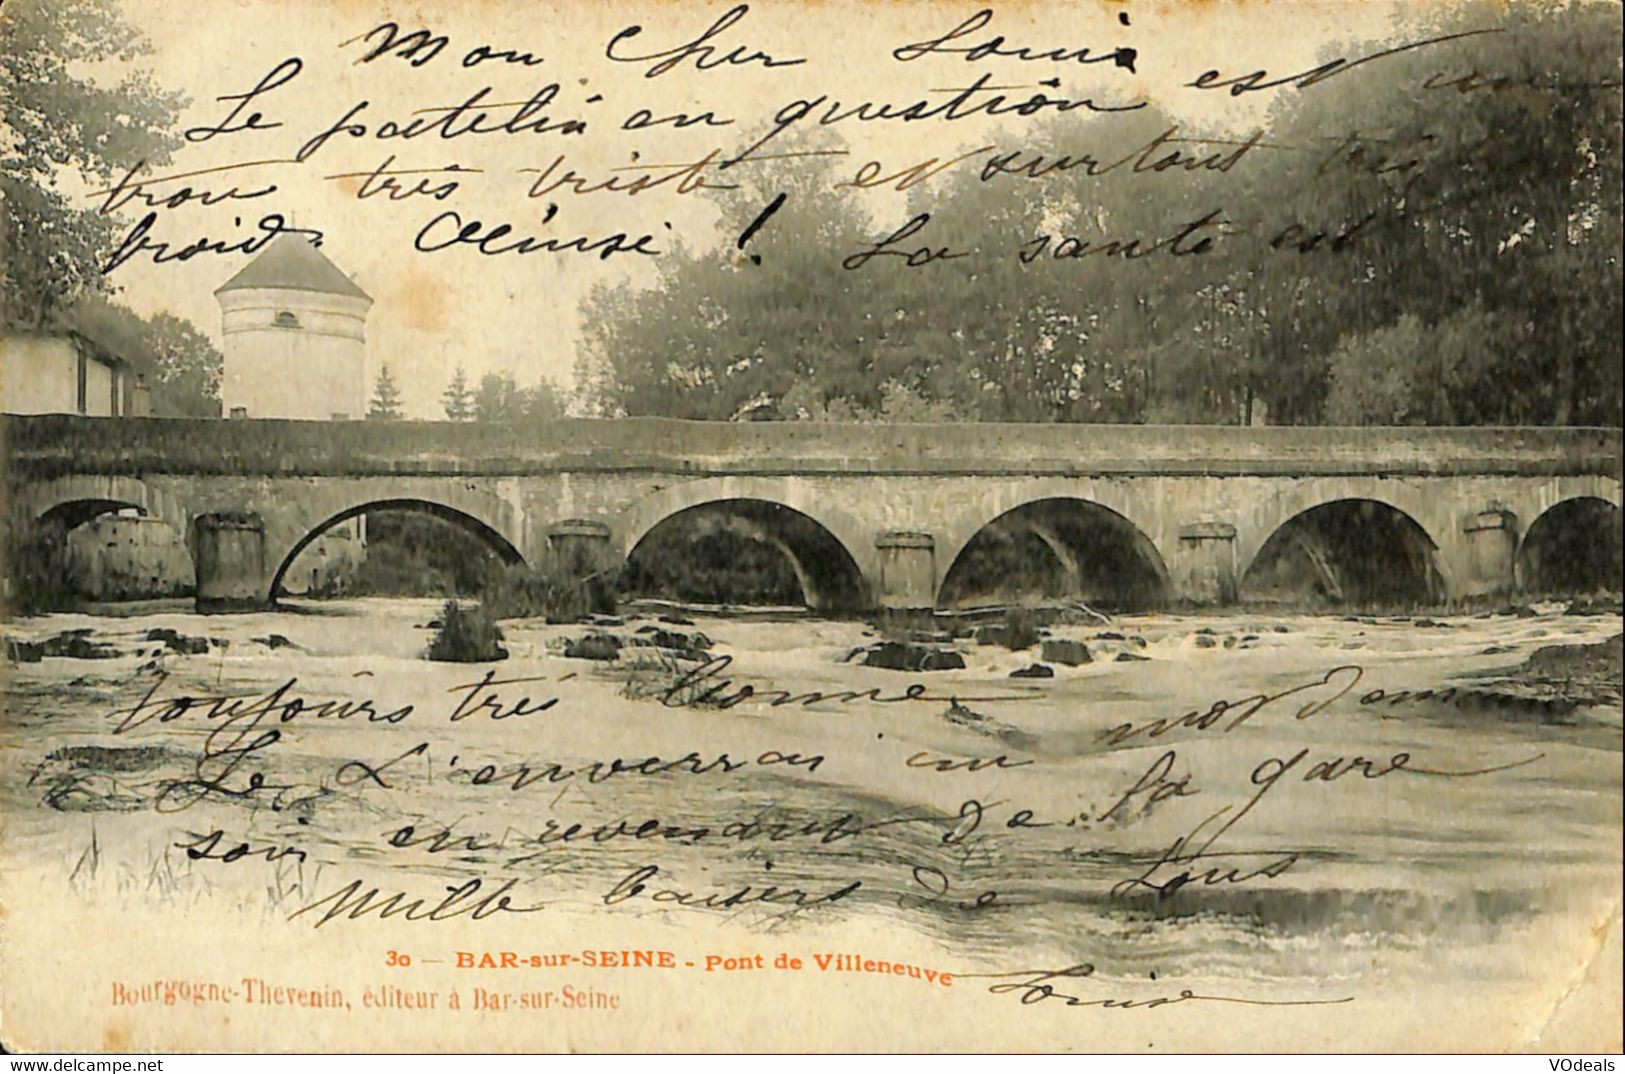 Mon cher Louis
Le patelin en question est un
trou très triste et surtout très
froid. Occinse ! La santé est
toujours très bonne
Je t'enverrai un mot demain
soir en revenant de la gare
Mille baisers de tous
30 — BAR-sur-SEINE - Pont de Villeneuve
Louise
Bourgogne-Thevenin, éditeur à Bar-sur-Seine
VOdeals